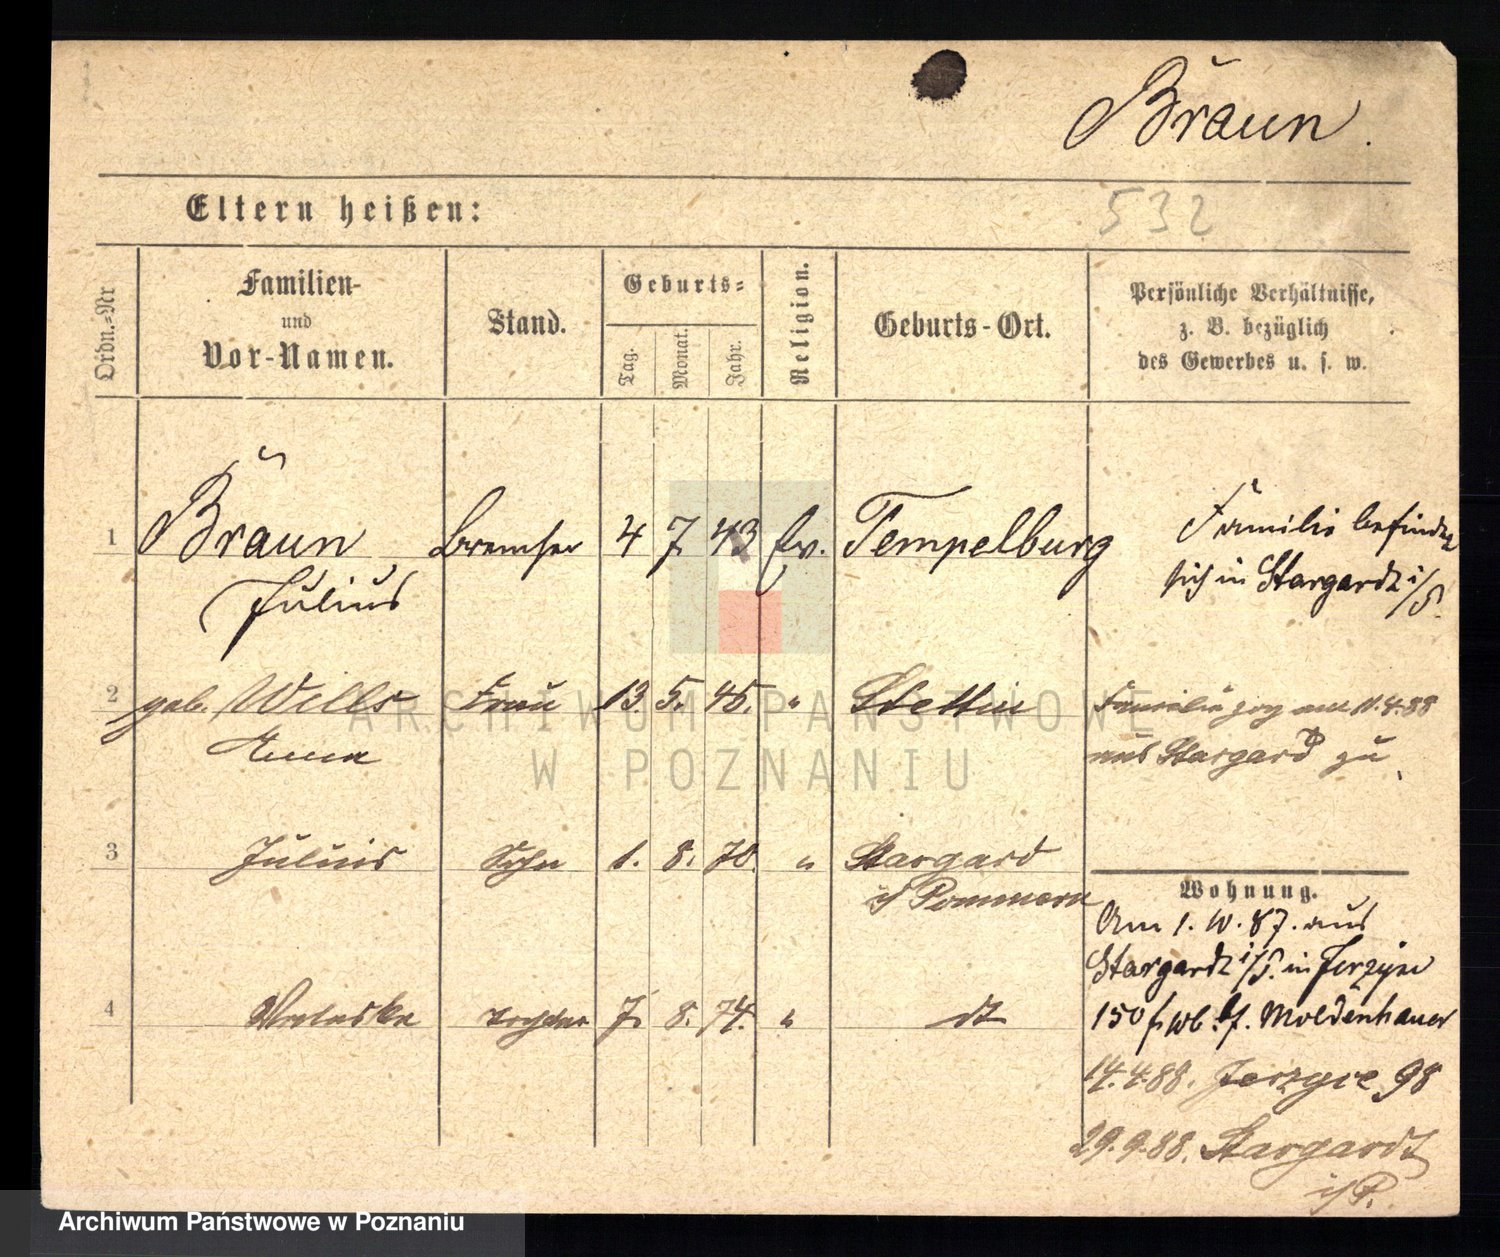 Braun.
Eltern heißen:
532
Ordn.-Nr
Familien-
und
Vor-Namen.
Stand.
Geburts-
Tag.
Monat.
Jahr.
Religion.
Geburts-Ort.
Persönliche Verhältnisse,
z. B. bezüglich
des Gewerbes u. s. w.
1 Braun Bremser 4 7 43 Ev. Tempelburg
Julius
Familie befindet
sich in Stargardt i/P.
2 geb. Wills Frau 13 5. 45. " Stettin
Anna
Familie zog am 11.4.88
aus Stargard zu
3 Julius Sohn 1. 8. 70. " Stargard
i/ Pommern
4 Valeska Tochter 7. 8. 74. " dt
Wohnung.
Am 1.10.87. aus
Stargardt i/P. in Jerzyce
150 b. Moldenhauer
14.4.88. Jerzyce 98
29.9.88. Stargardt
i/P.
ARCHIWUM PAŃSTWOWE
W POZNANIU
Archiwum Państwowe w Poznaniu